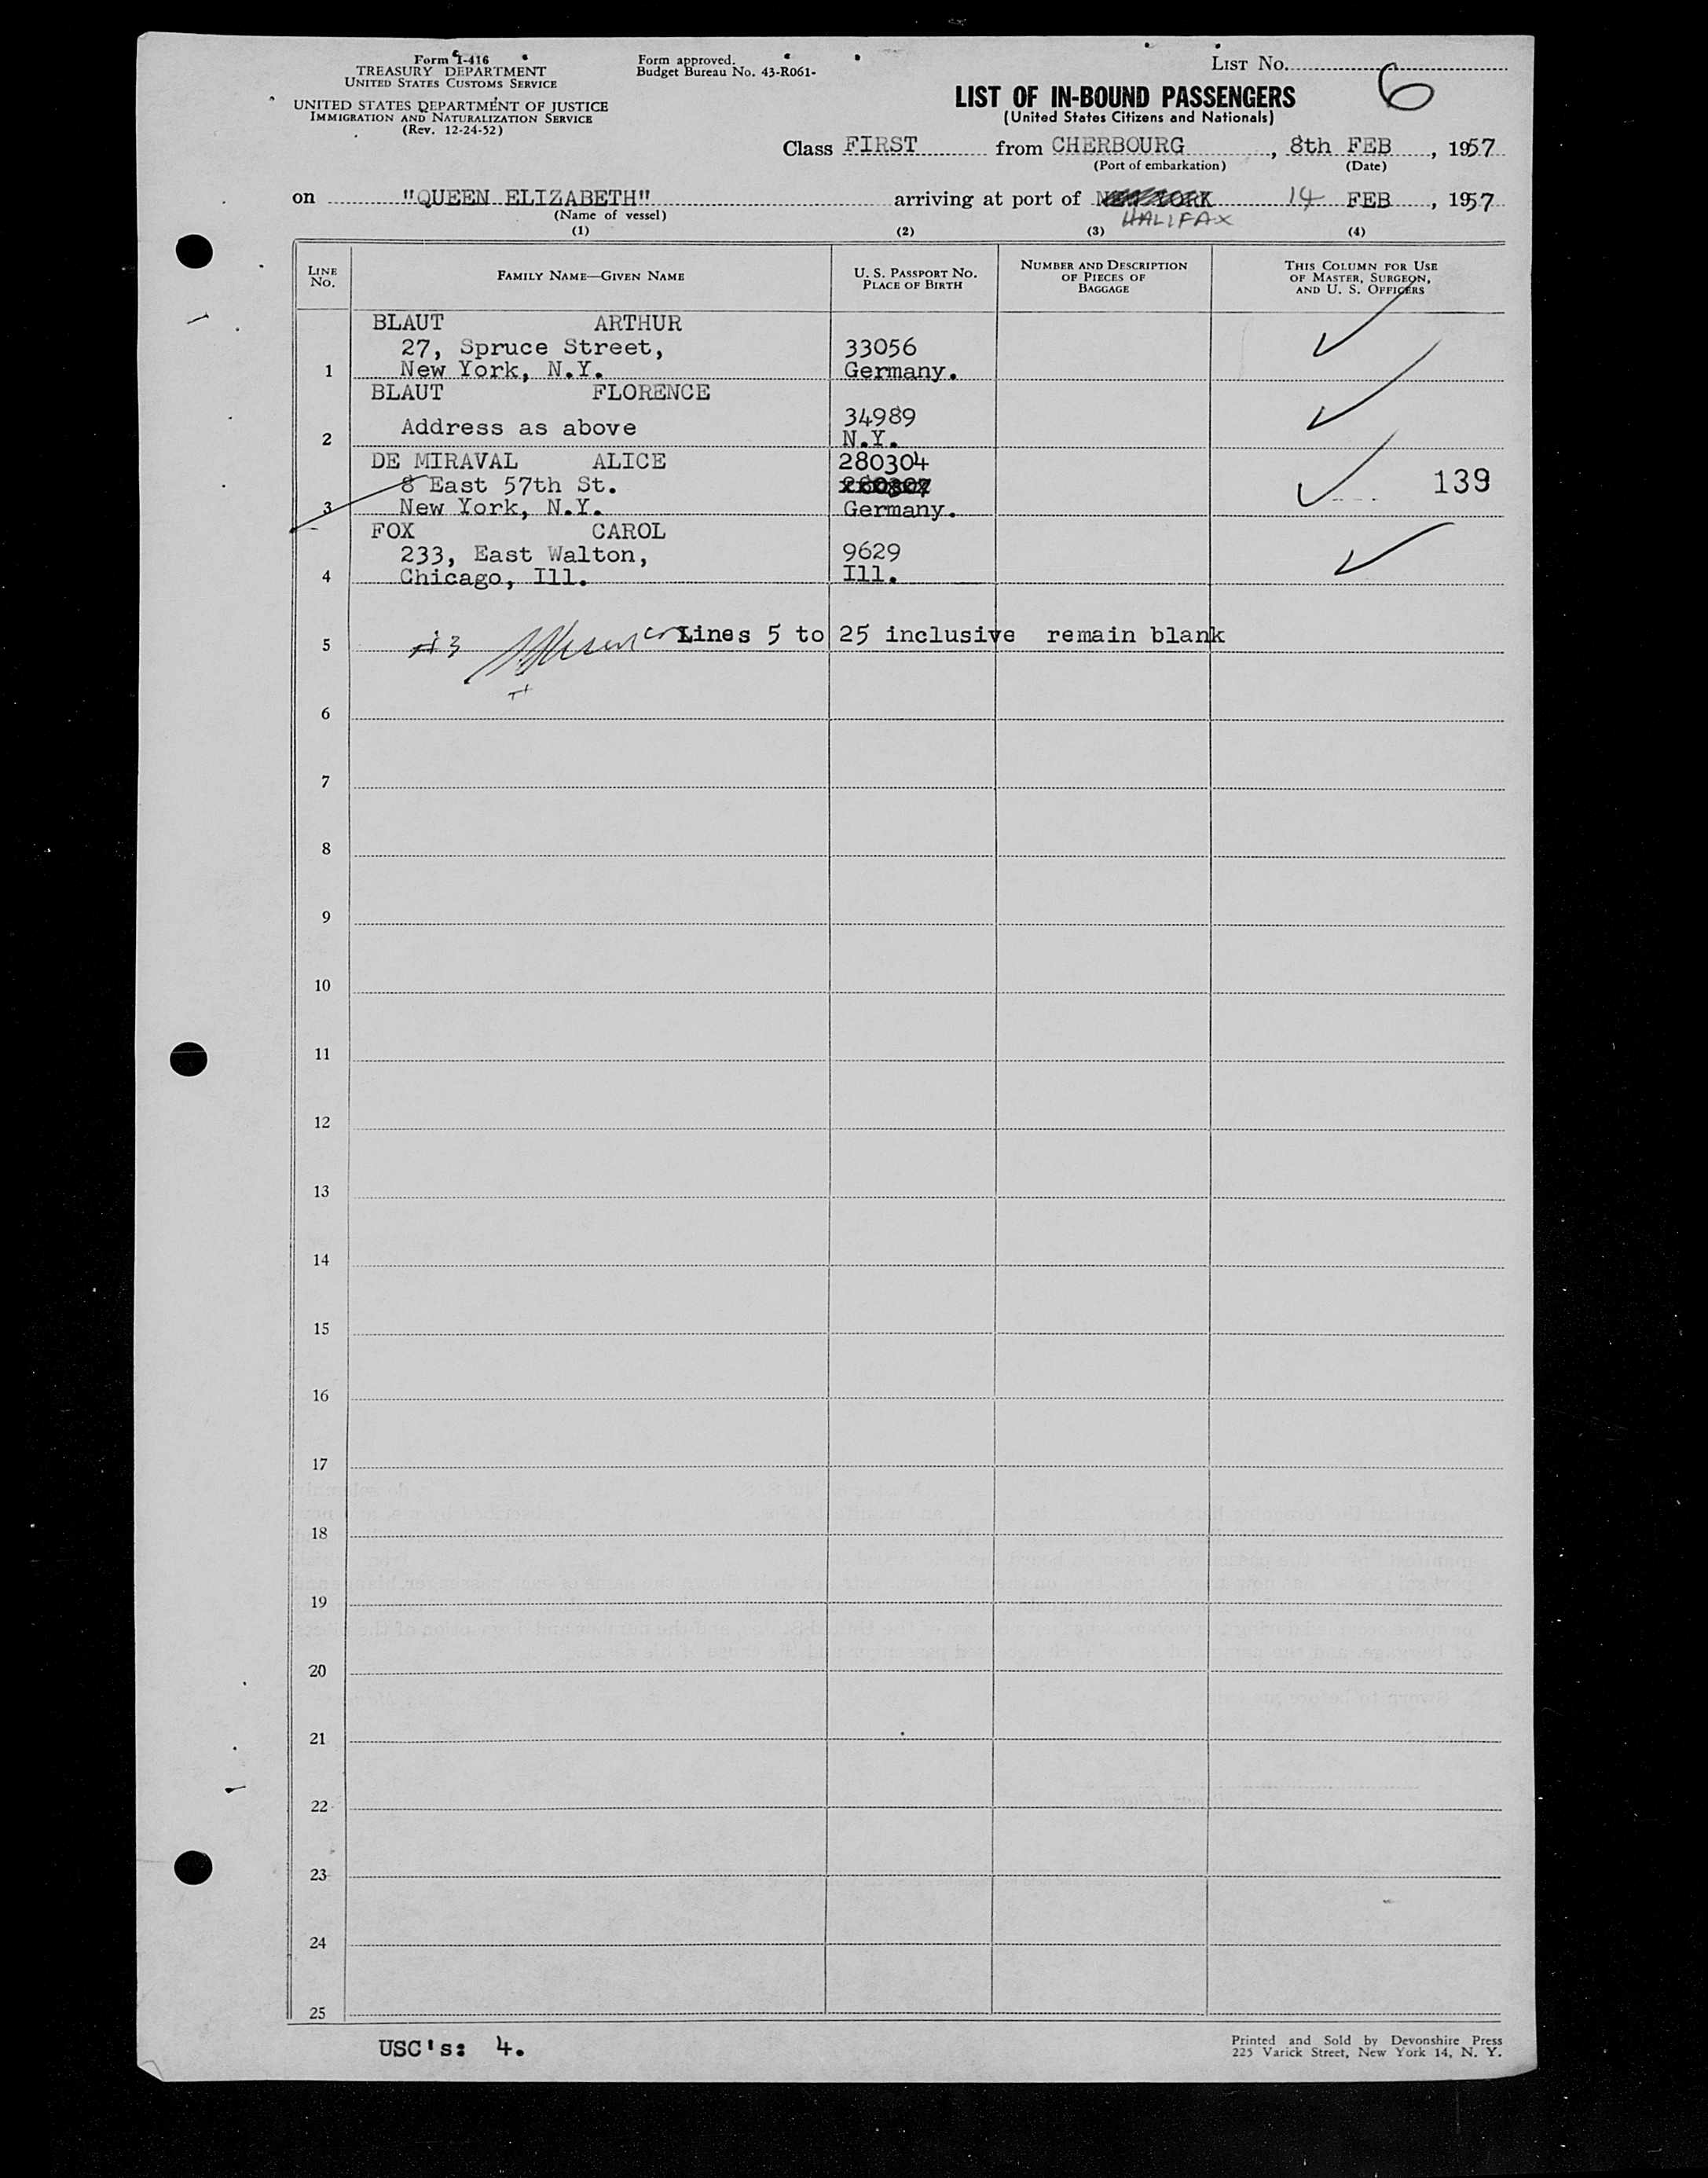 Form I-416
TREASURY DEPARTMENT
UNITED STATES CUSTOMS SERVICE
UNITED STATES DEPARTMENT OF JUSTICE
IMMIGRATION AND NATURALIZATION SERVICE
(Rev. 12-24-52)
Form approved.
Budget Bureau No. 43-R061-
LIST NO.
6
LIST OF IN-BOUND PASSENGERS
(United States Citizens and Nationals)
Class FIRST from CHERBOURG, 8th FEB, 1957
(Port of embarkation) (Date)
on "QUEEN ELIZABETH" arriving at port of NEW YORK 14 FEB, 1957
(Name of vessel) HALIFAX
(1) (2) (3) (4)
LINE NO. FAMILY NAME—GIVEN NAME U. S. PASSPORT NO. PLACE OF BIRTH NUMBER AND DESCRIPTION OF PIECES OF BAGGAGE THIS COLUMN FOR USE OF MASTER, SURGEON, AND U. S. OFFICERS
BLAUT ARTHUR
27, Spruce Street, 33056
1 New York, N.Y. Germany.
BLAUT FLORENCE
34989
Address as above
2 N.Y.
DE MIRAVAL ALICE 280304
8 East 57th St. 139
3 New York, N.Y. Germany.
FOX CAROL
233, East Walton, 9629
4 Chicago, Ill. Ill.
5 #3 Lines 5 to 25 inclusive remain blank
6
7
8
9
10
11
12
13
14
15
16
17
18
19
20
21
22
23
24
25
USC's: 4.
Printed and Sold by Devonshire Press
225 Varick Street, New York 14, N. Y.